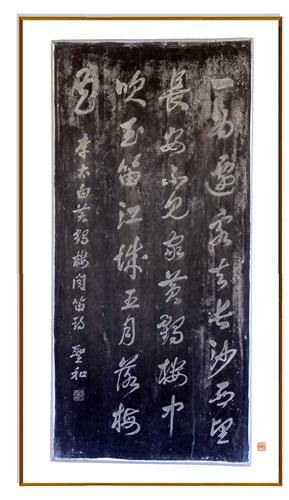 一為遷客去長沙西望
長安不見家黃鶴樓中
吹玉笛江城五月落梅
花
李太白黃鶴樓聞笛詩 聖和